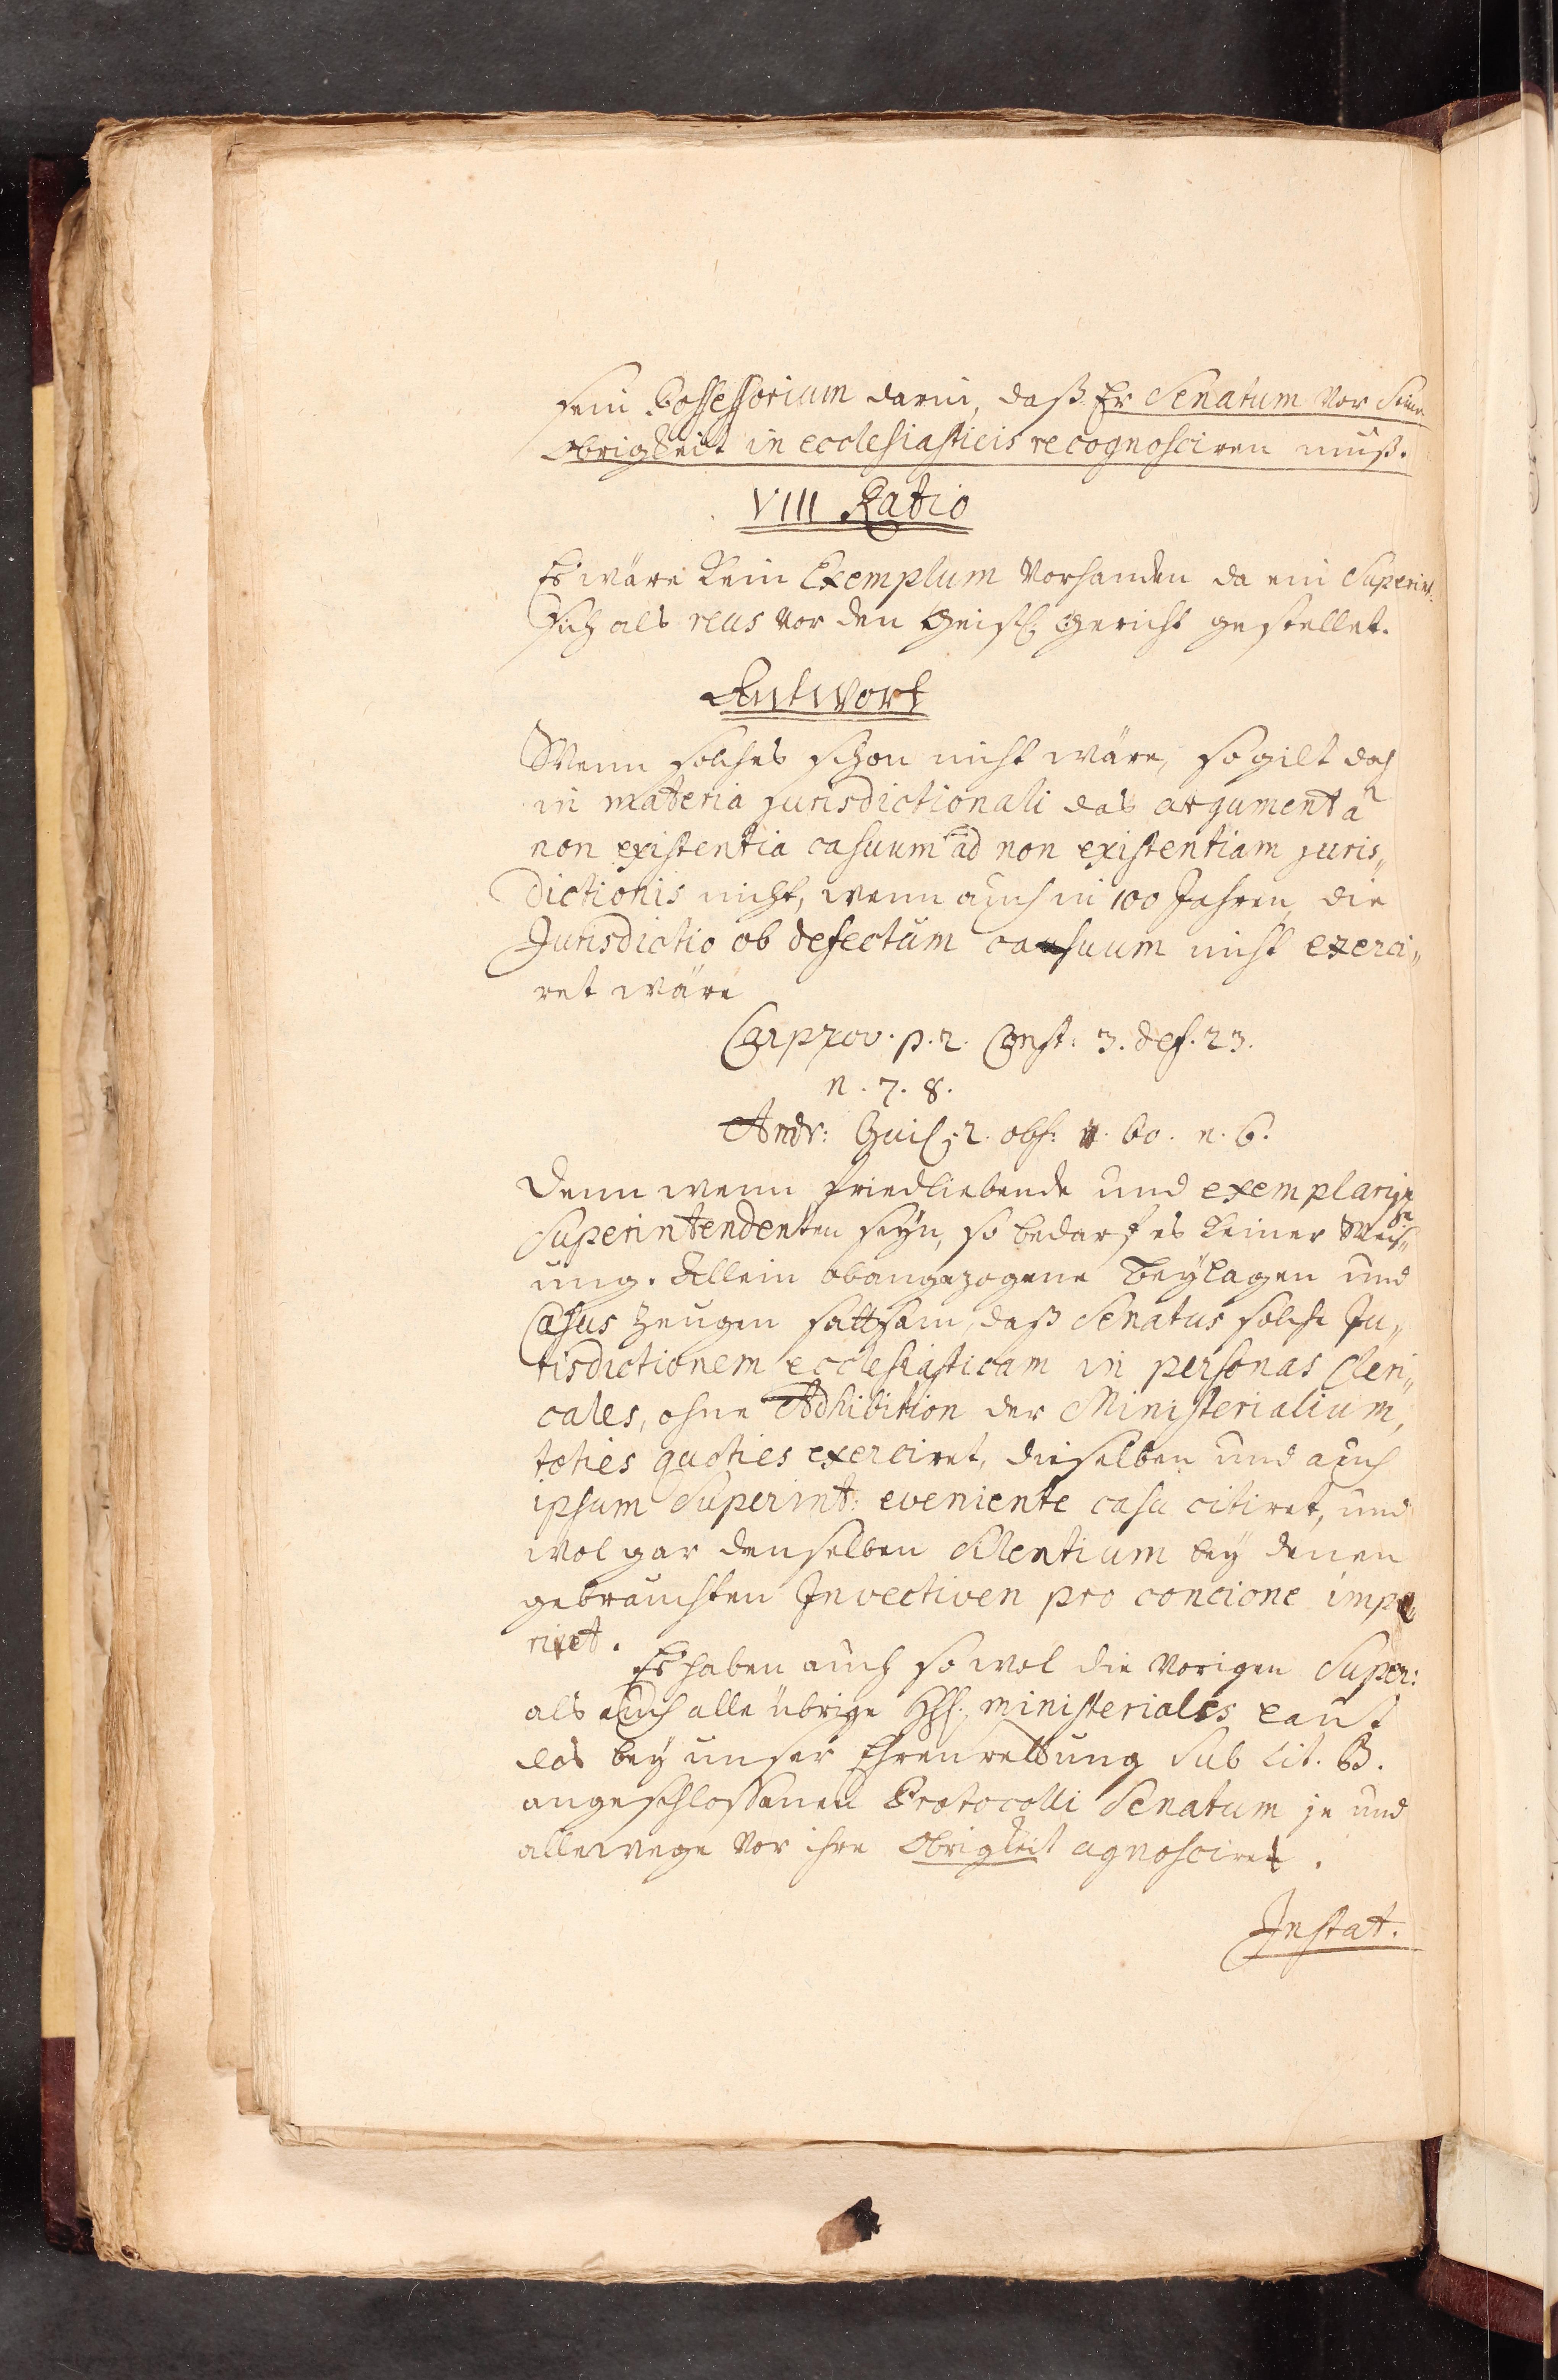 sein Possessorium darin, daß Er Senatum vor seine
Obrigkeit in ecclesiasticis recognosciren muß.
VIII Ratio
Es wäre kein Exemplum vorhanden da ein Superint:
sich als reus vor den Geistl. Gericht gestellet.
Antwort
Wenn solches schon nicht wäre, so gilt doch
in materia jurisdictionali das argument a
non existentia casuum ad non existentiam juris„
dictionis nicht, wenn auch in 100 Jahren die
Jurisdictio ob defectum casuum nicht exerci„
ret wäre
Carpzov. p. 2. Const: 3. def. 23.
n. 7. 8.
Andr: Gail. 2. obs: 60. n. 6.
Denn wenn friedliebende und exemplarische
Superintendenten seyn, so bedarf es keiner Weis„
ung. Allein obangezogene Beylagen und
Casus zeugen sattsam, daß Senatus solche Ju„
risdictionem ecclesiasticam in personas Cleri„
cales, ohne Adhibition der Ministerialium,
toties quoties exerciret, dieselben und auch
ipsum Superint: eveniente casu citiret, und
wol gar denselben Silentium bey denen
gebrauchten Invectiven pro concione impo
niret.
Es haben auch so wol die vorigen Super:
als auch alle übrige HH. ministeriales laut
des bey unser Ehrenrettung sub Lit. B.
angeschlossenen Protocolli Senatum je und
allewege vor ihre Obrigkeit agnosciret.
Instat.